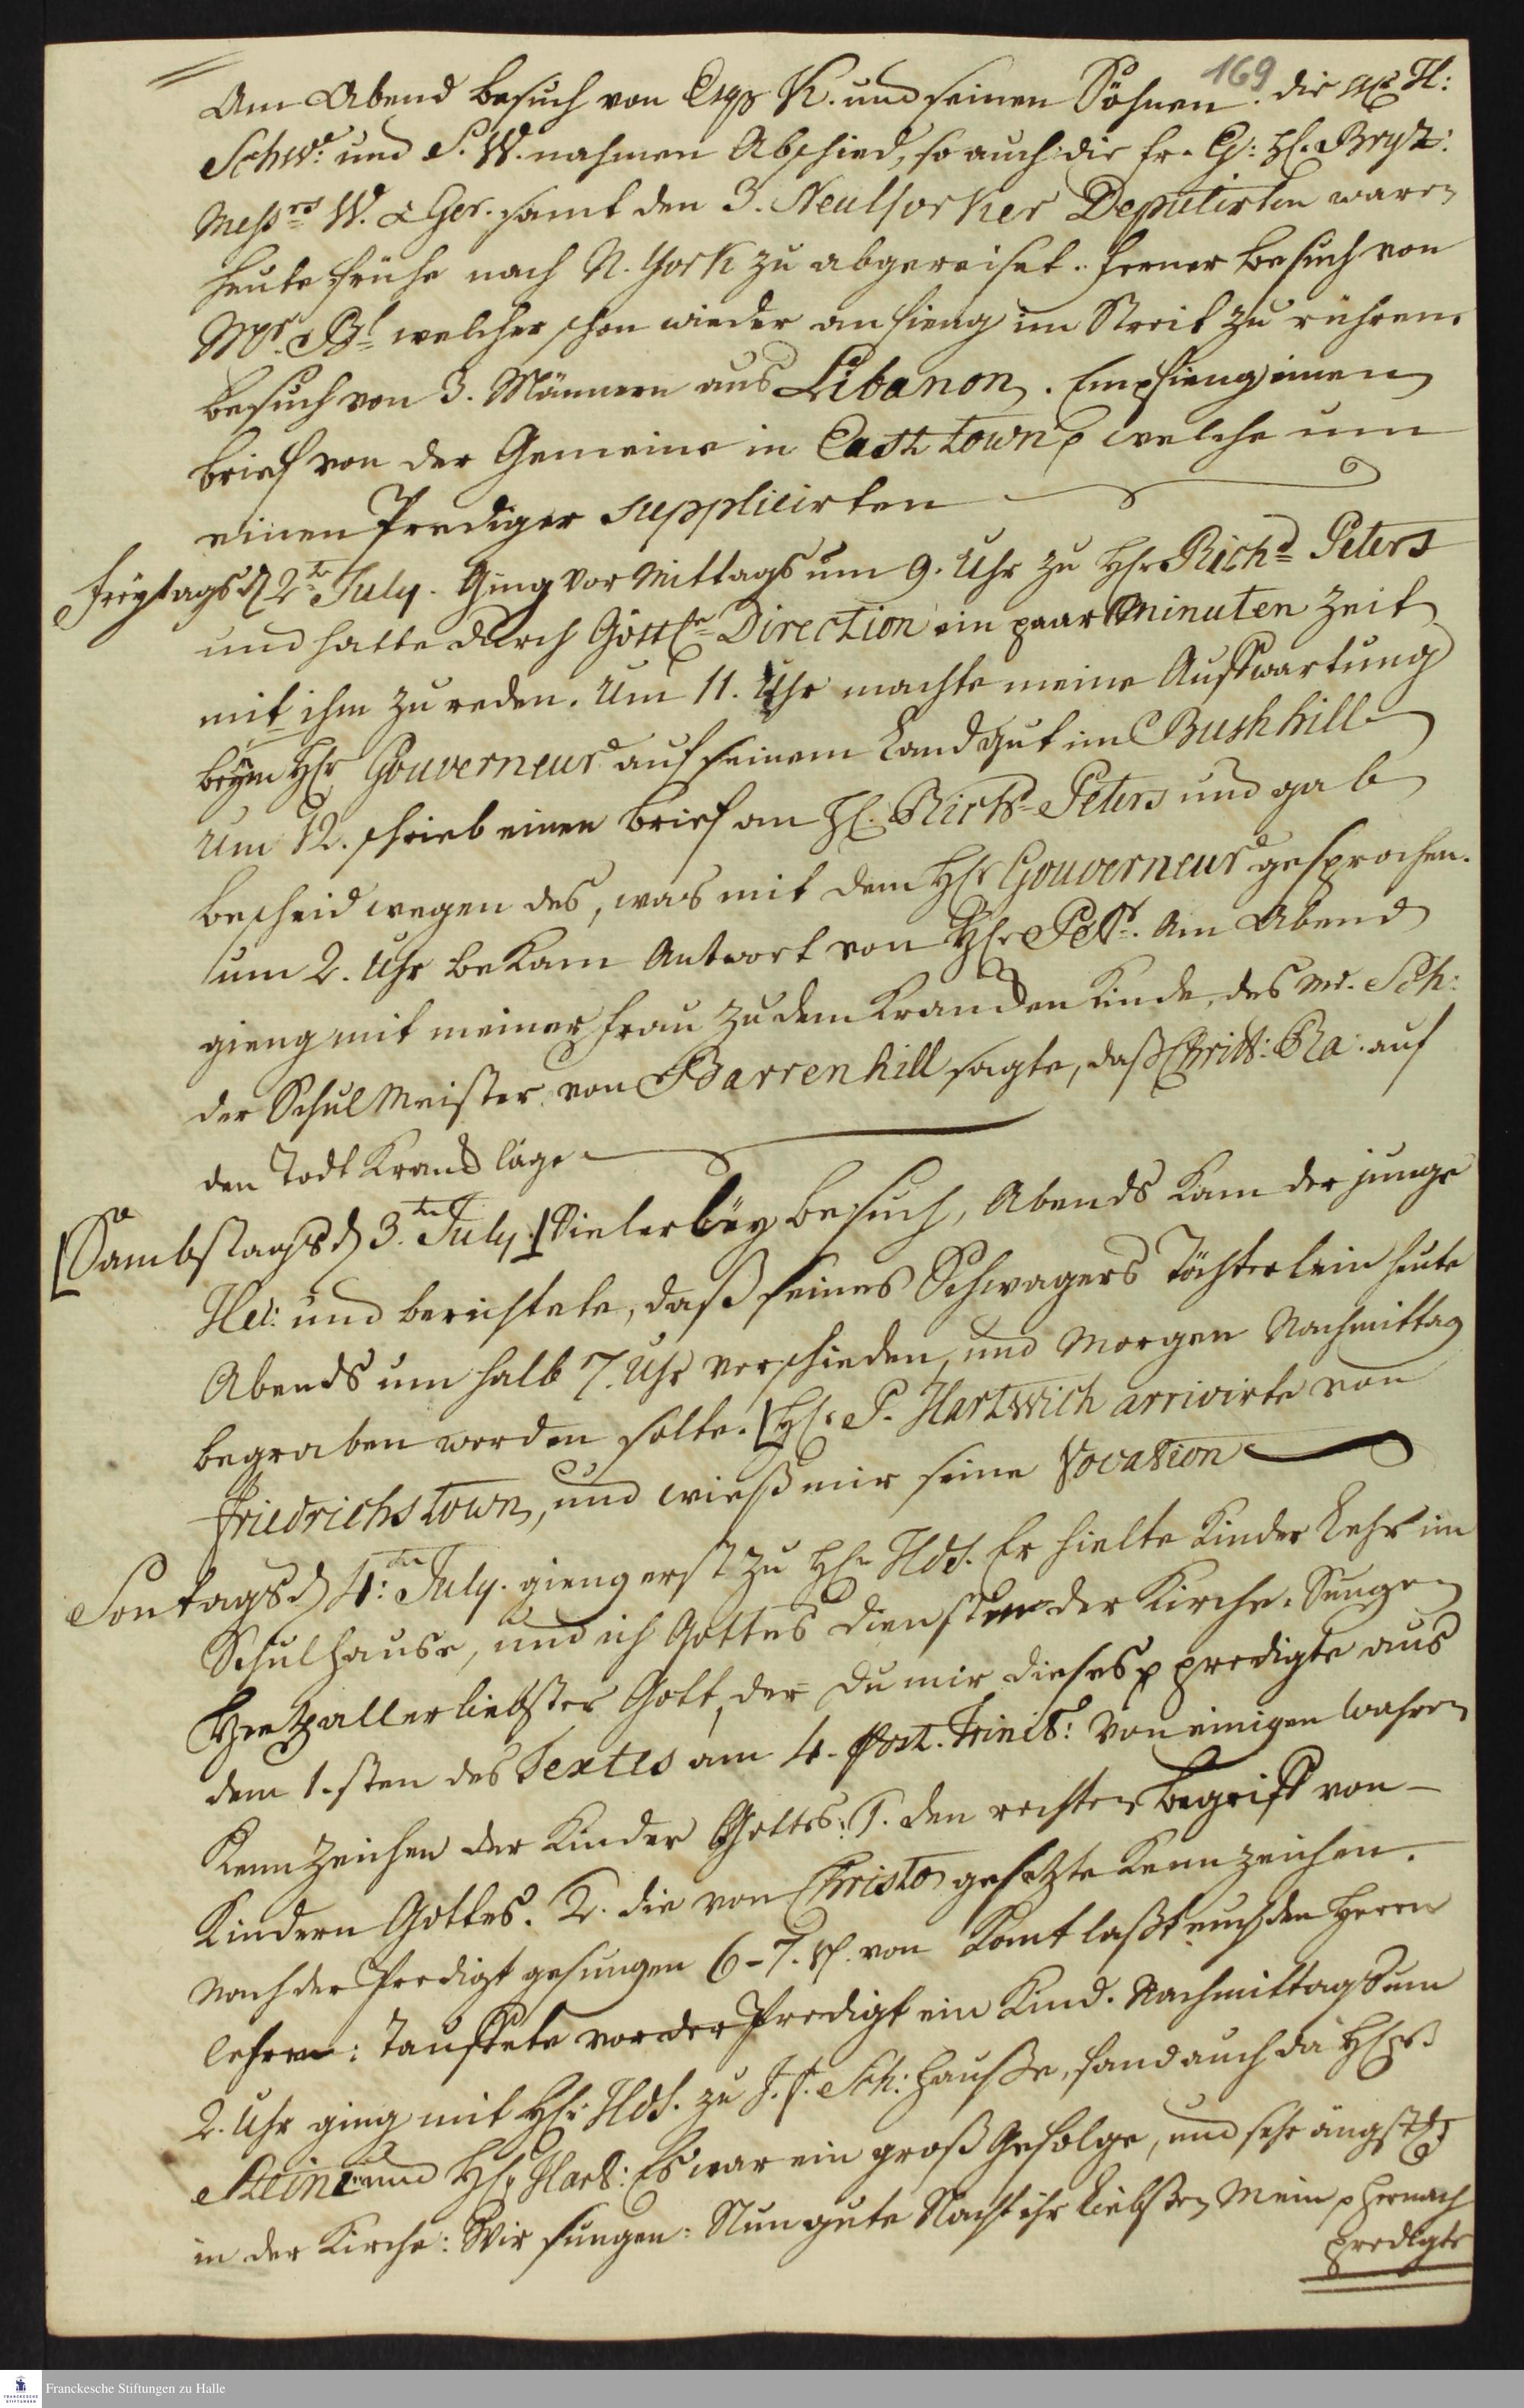 169
Am Abend besuch von Capt K. und seinen Söhnen. die Mr. H:
Schw: und S. W. nahmen Abschied, so auch die Hr. Hl. Bryz:
Messrs W. & Ger. samt den 3. Neu Yorker Deputirten waren
heute frühe nach N. York zu abgereiset. Ferner besuch von
Mr. Bl welcher schon wieder anfieng im Streit zu rühren.
besuch von 3. Männern aus Libanon. Empfieng einen
brief von der Gemeine in Easttown p welche um
einen Prediger supplicirten
Freytags d 2te July. Ging vor Mittags um 9. Uhr zu Hr Richd Peters
und hatte durch Göttle Direction ein paar Minuten Zeit
mit ihm zu reden. Um 11. Uhr machte meine Aufwartung
beym Hr Gouverneur auf seinem Landgut im Bushhill
Um 12. schrieb einen brief an H. Richd Peters und gab
bescheid wegen des, was mit dem Hr Gouverneur gesprochen.
um 2. Uhr bekam Antwort von Hr Petr. Am Abend
gieng mit meiner Frau zu dem Krancken Kinde des Mr. Sch:
der Schulmeister von Barrenhill sagte, daß Christ: Ra: auf
den Todt Kranck läge
Sambstags d 3te July. Vielerley besuch, Abends kam der junge
Hei: und berichtete, daß seines Schwagers Töchterlein heute
Abends um halb 7. Uhr verschieden, und Morgen Nachmittag
begraben werden solte. Hr. P. Hartwich arrivirte von
Friedrichstown, und wieß mir seine Vocation
Sontags d 4te July. gieng erst zu Hr Hds. Er hielte Kinder Lehr im
Schulhause, und ich Gottes dienst in der Kirche. Sungen
Hertzallerliebster Gott, der du mir dieses p predigte aus
dem 1.sten des Textes am 4. post. Trinit: Von einigen wahren
Kennzeichen der Kinder Gottes: 1. den rechten Begriff von
Kindern Gottes. 2. die von Christo gesetzte Kennzeichen.
Nach der Predigt gesungen 6-7. v. von Komt laßt euch den Herren
lehren: Tauffete vor der Predigt ein Kind. Nachmittags um
2. Uhr ging mit Hr: Hds. zu J. F. Sch: Hauße, fand auch da
und Hr Hart: Es war ein groß Gefolge, und sehr
in der Kirche: Wir sungen: Nun gute Nacht ihr Liebsten Mein p hernach
predigte
Franckesche Stiftungen zu Halle